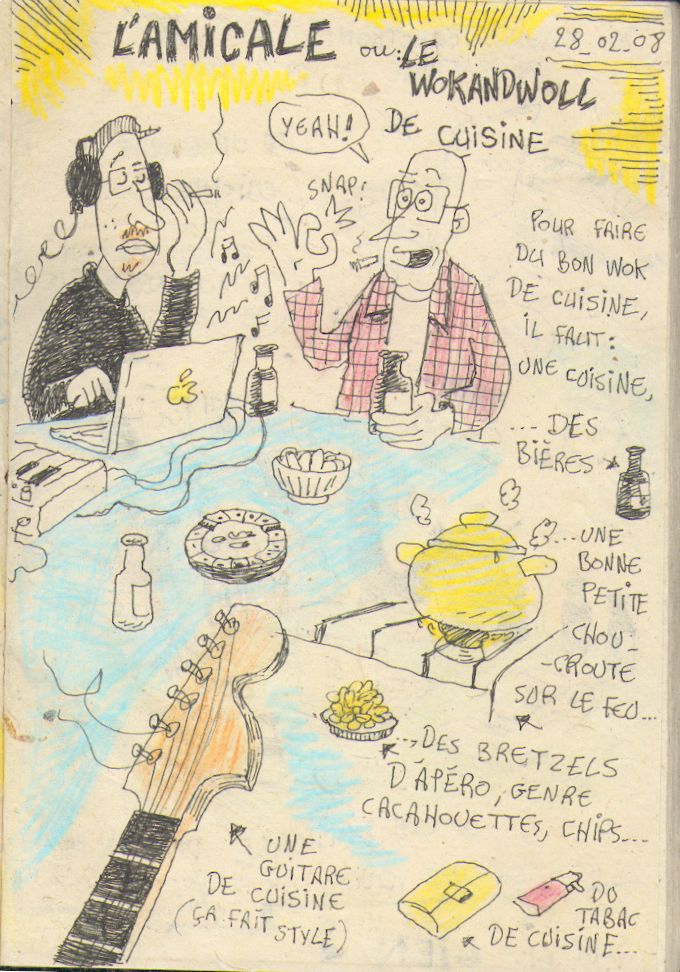 L'AMICALE OU: LE
WOKANDWOLL
DE CUISINE
28_02_08
YEAH!
SNAP!
POUR FAIRE
DU BON WOK
DE CUISINE,
IL FAUT:
UNE CUISINE,
... DES
BIÈRES
...UNE
BONNE
PETITE
CHOU-
-CROUTE
SUR LE FEU...
...DES BRETZELS
D'APÉRO, GENRE
CACAHOUETTES, CHIPS...
UNE
GUITARE
DE CUISINE
(ÇA FAIT
STYLE)
DU
TABAC
DE CUISINE...